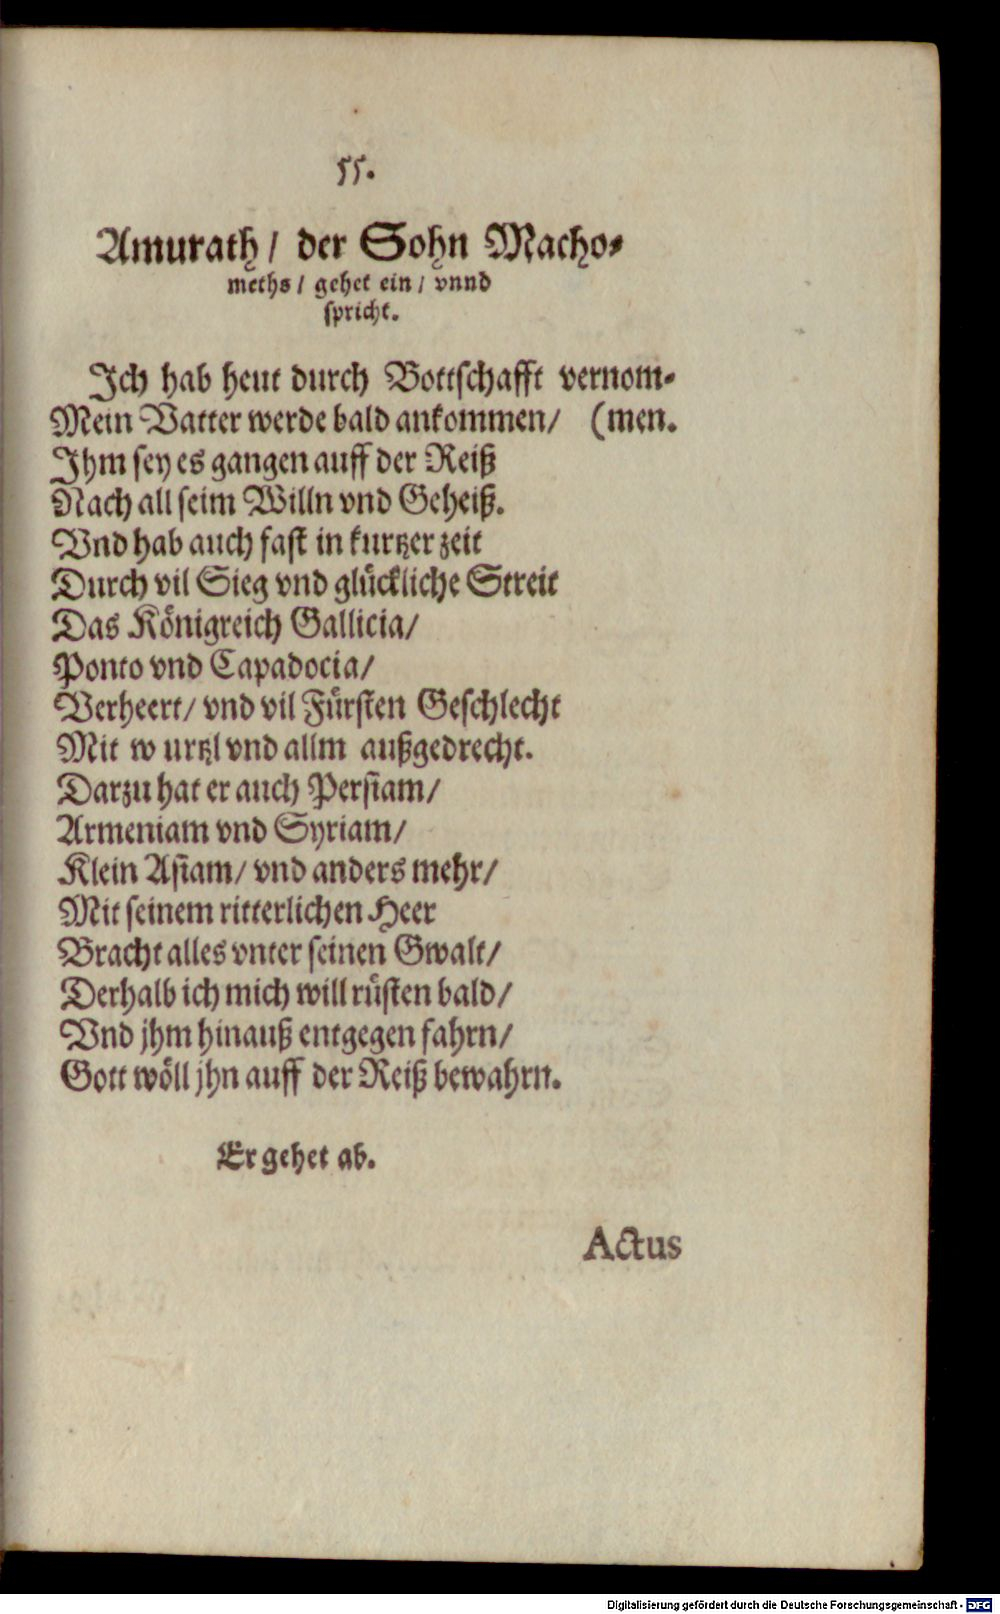 55.
Amurath/ der Sohn Macho-
meths/ gehet ein/ vnnd
spricht.
Ich hab heut durch Bottschafft vernom-
Mein Vatter werde bald ankommen/ (men.
Ihm sey es gangen auff der Reiß
Nach all seim Willn vnd Geheiß.
Vnd hab auch fast in kurtzer zeit
Durch vil Sieg vnd glückliche Streit
Das Königreich Gallicia/
Ponto vnd Capadocia/
Verheert/ vnd vil Fürsten Geschlecht
Mit w urtzl vnd allm außgedrecht.
Darzu hat er auch Persiam/
Armeniam vnd Syriam/
Klein Asiam/ vnd anders mehr/
Mit seinem ritterlichen Heer
Bracht alles vnter seinen Gwalt/
Derhalb ich mich will rüsten bald/
Vnd jhm hinauß entgegen fahrn/
Gott wöll jhn auff der Reiß bewahrn.
Er gehet ab.
Actus
Digitalisierung gefördert durch die Deutsche Forschungsgemeinschaft - DFG